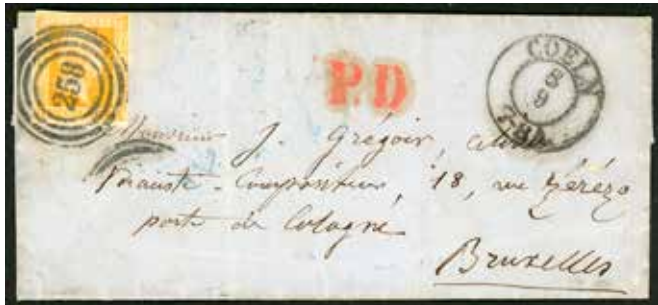 258
P.D
COELN
8
9
Monsieur J. Grégoir,
Pianiste-Compositeur, 18, rue
porte de Cologne
Bruxelles